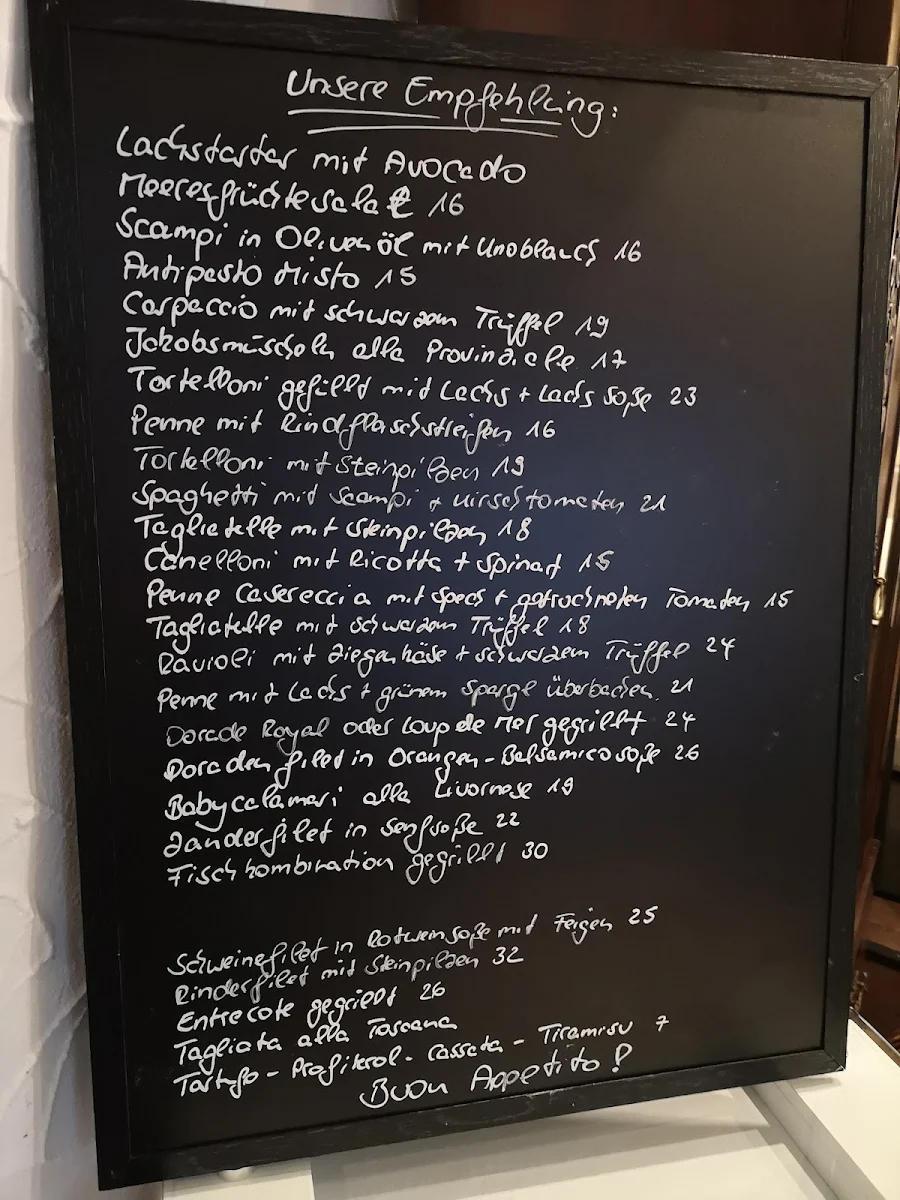 Unsere Empfehlung:
Lachstartar mit Avocado
Meeresfrüchtesalat 16
Scampi in Olivenöl mit Knoblauch 16
Antipasto Misto 15
Carpaccio mit schwarzem Trüffel 19
Jakobsmuscheln alla Provinziale 17
Tortelloni gefüllt mit Lachs + Lachs Soße 23
Penne mit Rindflaschstreifen 16
Tortelloni mit Steinpilzen 19
Spaghetti mit Scampi + Kirschtomaten 21
Tagliatelle mit Steinpilzen 18
Canelloni mit Ricotta + Spinat 15
Penne Casereccia mit Speck + getrockneten Tomaten 15
Tagliatelle mit schwarzem Trüffel 18
Ravioli mit Ziegenkäse + schwarzem Trüffel 24
Penne mit Lachs + grünem Spargel überbacken 21
Dorade Royal oder Loup de Mer gegrillt 24
Doradenfilet in Orangen-Balsamicosoße 26
Babycalamari alla Livornese 19
Zanderfilet in Senfsoße 22
Fischkombination gegrillt 30
Schweinefilet in Rotweinsoße mit Feigen 25
Rinderfilet mit Steinpilzen 32
Entrecote gegrillt 26
Tagliata alla Toscana
Tartufo - Profiterol - Cassata - Tiramisu 7
Buon Appetito!